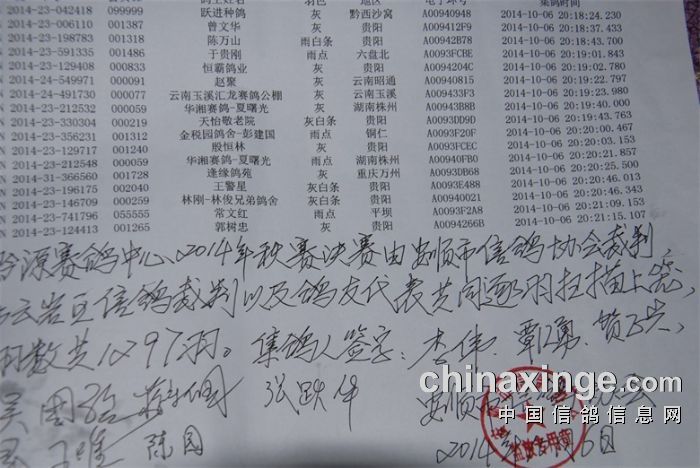 N 2014-23-042418 099999 跃进种鸽 灰 黔西沙窝 A00940948 2014-10-06 20:18:24.230
N 2014-23-006110 001387 曾文华 灰 贵阳 A009412F9 2014-10-06 20:18:37.713
2014-23-191318 000108 陈万山 雨白条 贵阳 A00942B78 2014-10-06 20:18:43.700
N 2014-23-591335 001486 于贵刚 雨点 六盘北 A0093FCBE 2014-10-06 20:19:01.843
N 2014-23-129408 000833 恒霸鸽业 灰 贵阳 A0094204C 2014-10-06 20:19:02.780
N 2014-24-549971 000091 赵聚 灰 云南昭通 A00940815 2014-10-06 20:19:22.797
N 2014-24-491730 000077 云南玉溪汇龙赛鸽公棚 灰 云南玉溪 A009433F3 2014-10-06 20:19:23.980
N 2014-23-212532 000059 华湘赛鸽-夏曙光 灰 湖南株州 A00943B8B 2014-10-06 20:19:40.000
N 2014-23-330304 000219 天怡敬老院 灰白条 贵阳 A0093DD9D 2014-10-06 20:19:43.763
N 2014-23-356231 001312 金税园鸽舍-彭建国 雨点 铜仁 A0093F20F 2014-10-06 20:20:00.467
N 2014-23-129717 001240 殷恒林 灰 贵阳 A0093FCEC 2014-10-06 20:20:03.173
N 2014-23-212548 000059 华湘赛鸽-夏曙光 雨点 湖南株州 A00940FB0 2014-10-06 20:20:21.857
N 2014-31-366560 001728 逢缘鸽苑 灰 重庆万州 A0093DB68 2014-10-06 20:20:25.500
N 2014-23-196175 002040 王警星 灰白条 贵阳 A0093E488 2014-10-06 20:20:46.013
N 2014-23-146709 000259 林刚-林俊兄弟鸽舍 灰白条 贵阳 A00940021 2014-10-06 20:20:46.343
N 2014-23-741796 055555 常文红 雨点 平坝 A0093F2A8 2014-10-06 20:21:09.153
N 2014-23-124413 001265 郭树忠 灰 贵阳 A0094266B 2014-10-06 20:21:15.107
源赛鸽中心2014年秋赛决赛由安顺市信鸽协会裁判,
云岩区信鸽裁判以及鸽友代表共同逐羽扫描上笼,
羽数共1297羽。集鸽人签字:李伟、
张跃华 安顺市信鸽
陈园 2014年 6日
chinaxinge.com
中国信鸽信息网